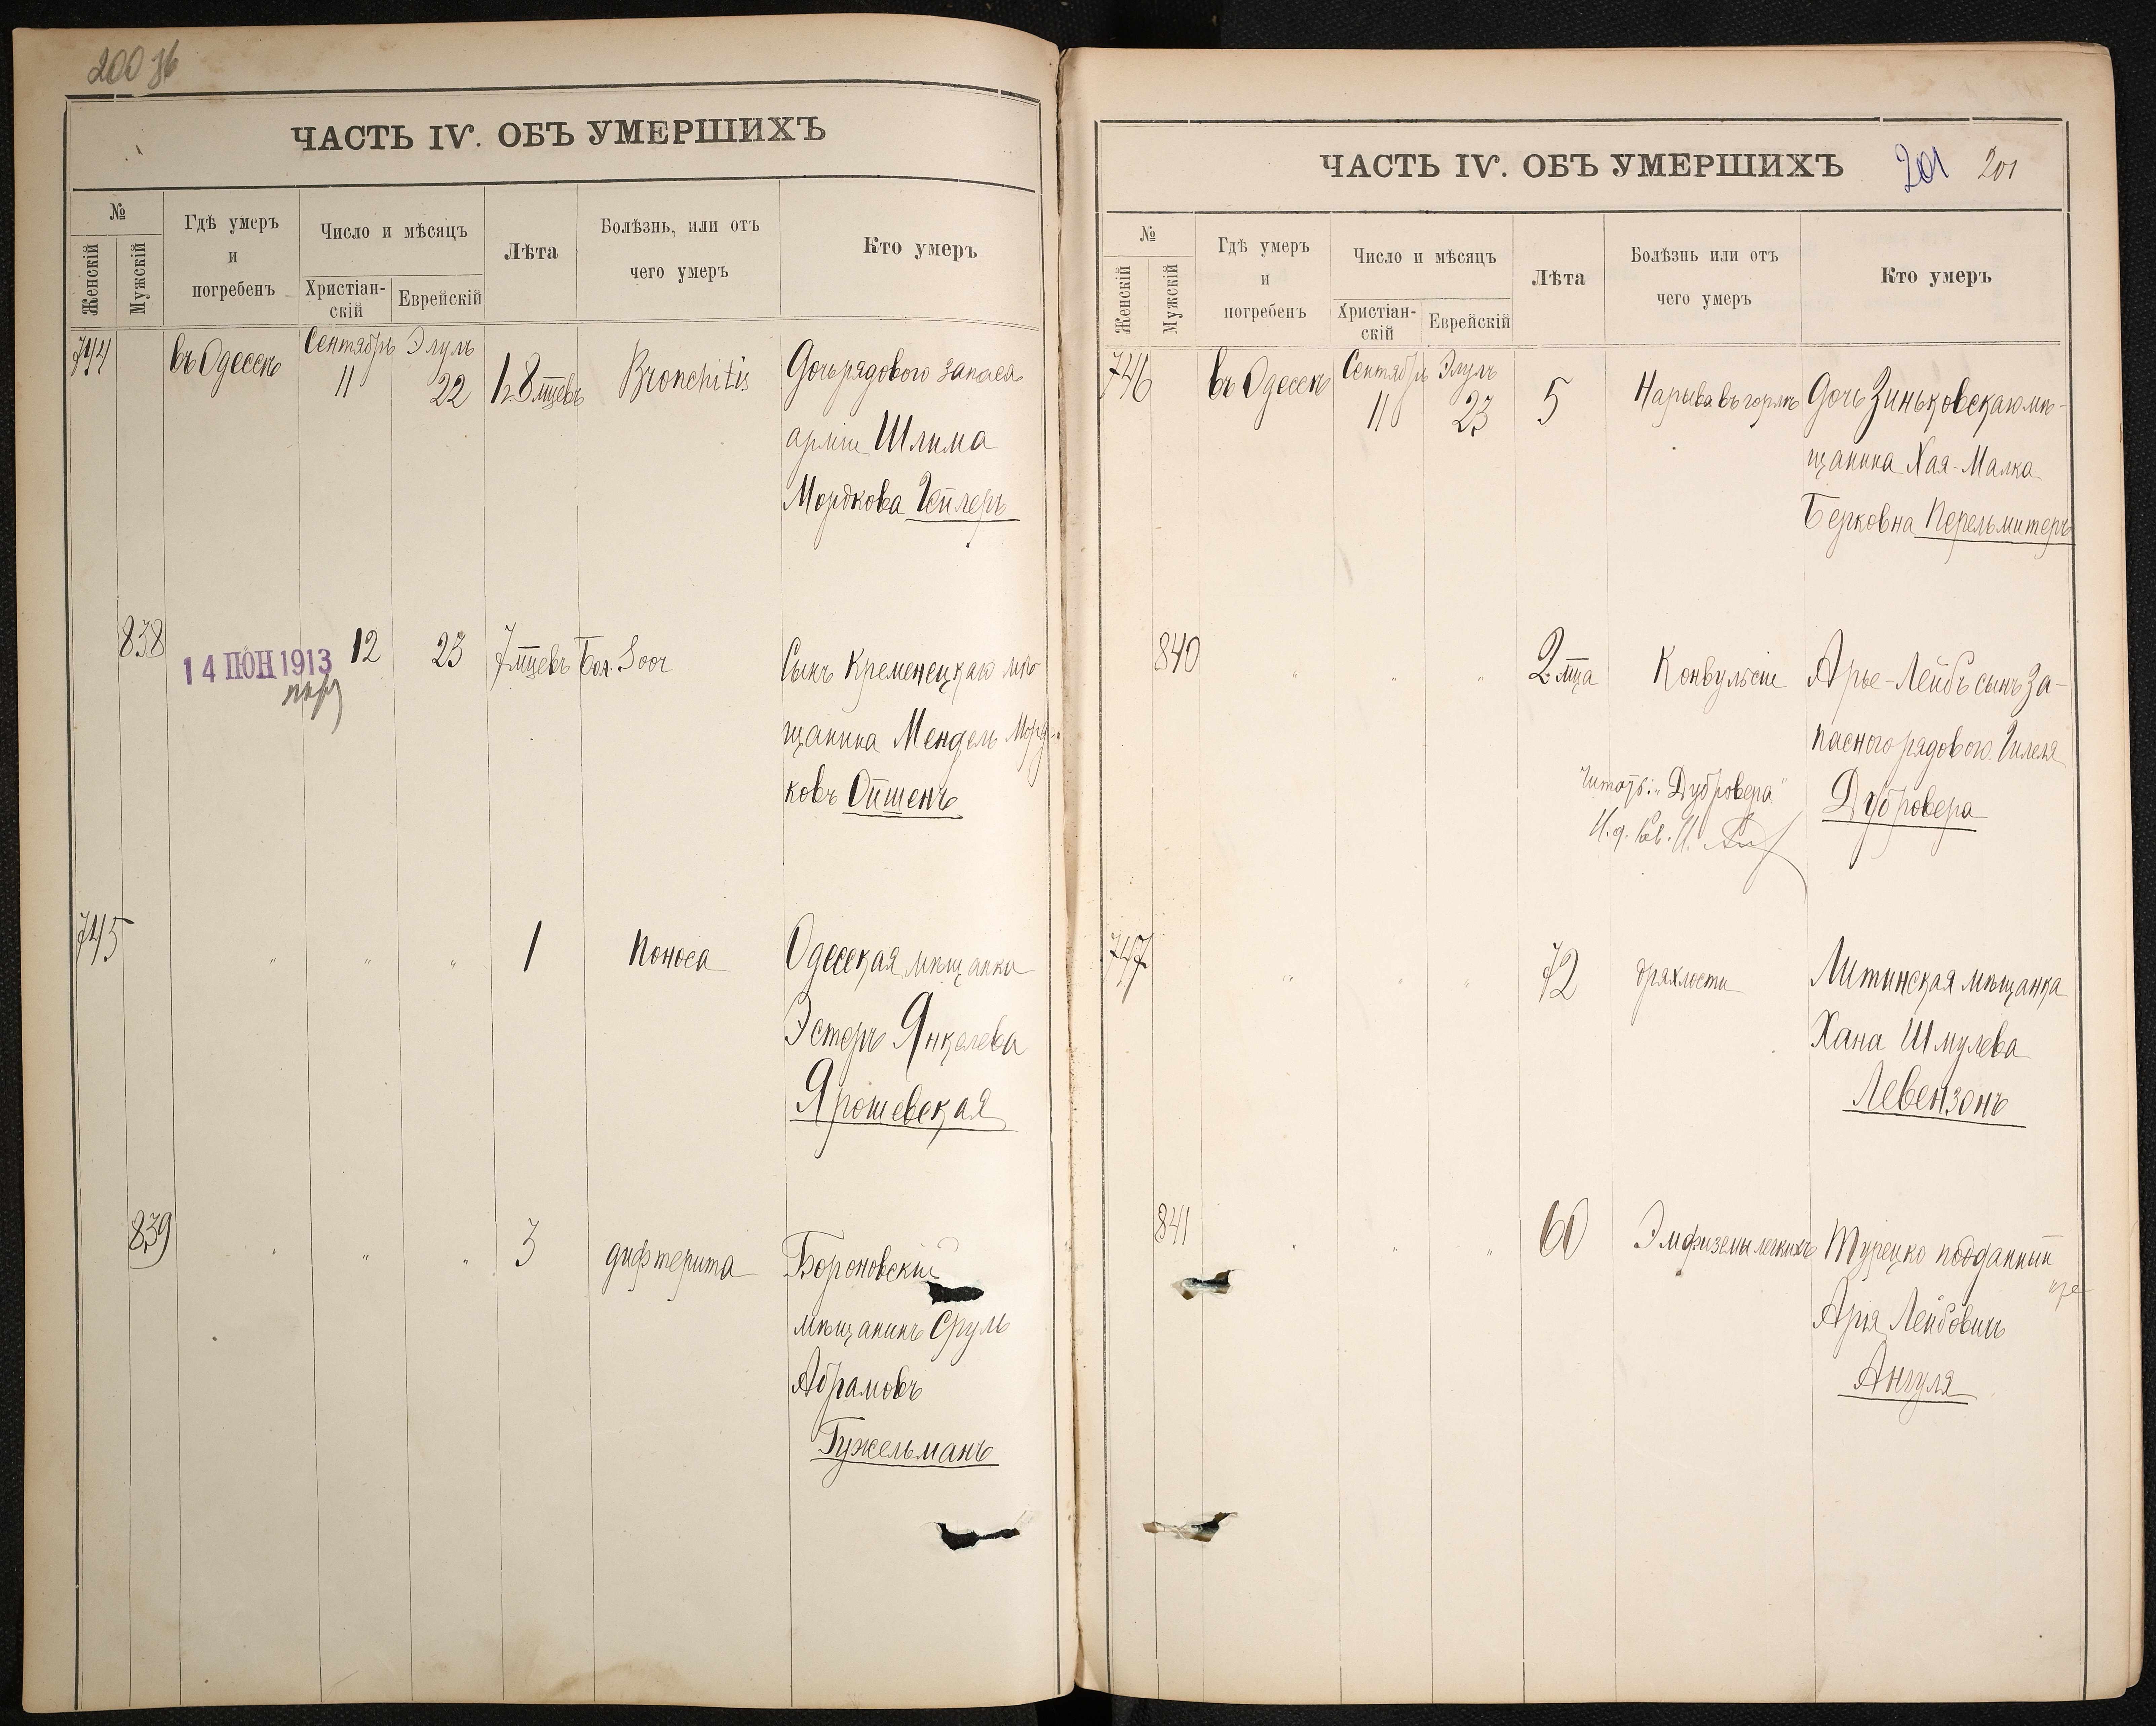 200 об
ЧАСТЬ IV. ОБЪ УМЕРШИХЪ
№
Женскій
Мужскій
Гдѣ умеръ
и
погребенъ
Число и мѣсяцъ
Христіан-
скій
Еврейскій
Лѣта
Болѣзнь, или отъ
чего умеръ
Кто умеръ
744 въ Одессѣ Сентябрь 11 Элулъ 22 1 г. 8 мцевъ Bronchitis Дочь рядового запаса
арміи Шлима
Мордкова Гейлеръ
838 12 23 7 мцевъ Бол. Soor Сынъ Кременецкаго мѣ-
14 ІЮН 1913
щанина Мендель Морд-
ковъ Ойшенъ
745 " " " 1 Поноса Одесская мѣщанка
Эстеръ Янкелева
Ярошевская
839 " " " 3 дифтерита Бороновскій
мѣщанинъ Сруль
Абрамовъ
Гужельманъ
ЧАСТЬ IV. ОБЪ УМЕРШИХЪ 201 201
№
Женскій
Мужскій
Гдѣ умеръ
и
погребенъ
Число и мѣсяцъ
Христіан-
скій
Еврейскій
Лѣта
Болѣзнь или отъ
чего умеръ
Кто умеръ
746 въ Одессѣ Сентябрь 11 Элулъ 23 5 Нарыва въ горлѣ Дочь Зиньковскаго мѣ-
щанина Хая-Малка
Берковна Перельмитеръ
840 " " " 2 мца Конвульсіи Арье-Лейбъ сынъ за-
пасного рядового Гилеля
Дубровера
Читать: „Дубровера"
И. д. Рав. И.
747 " " " 72 дряхлости Литинская мѣщанка
Хана Шмулева
Левензонъ
841 " " " 60 Эмфиземы легкихъ Турецко подданный
Арія Лейбовичъ
Ангуля